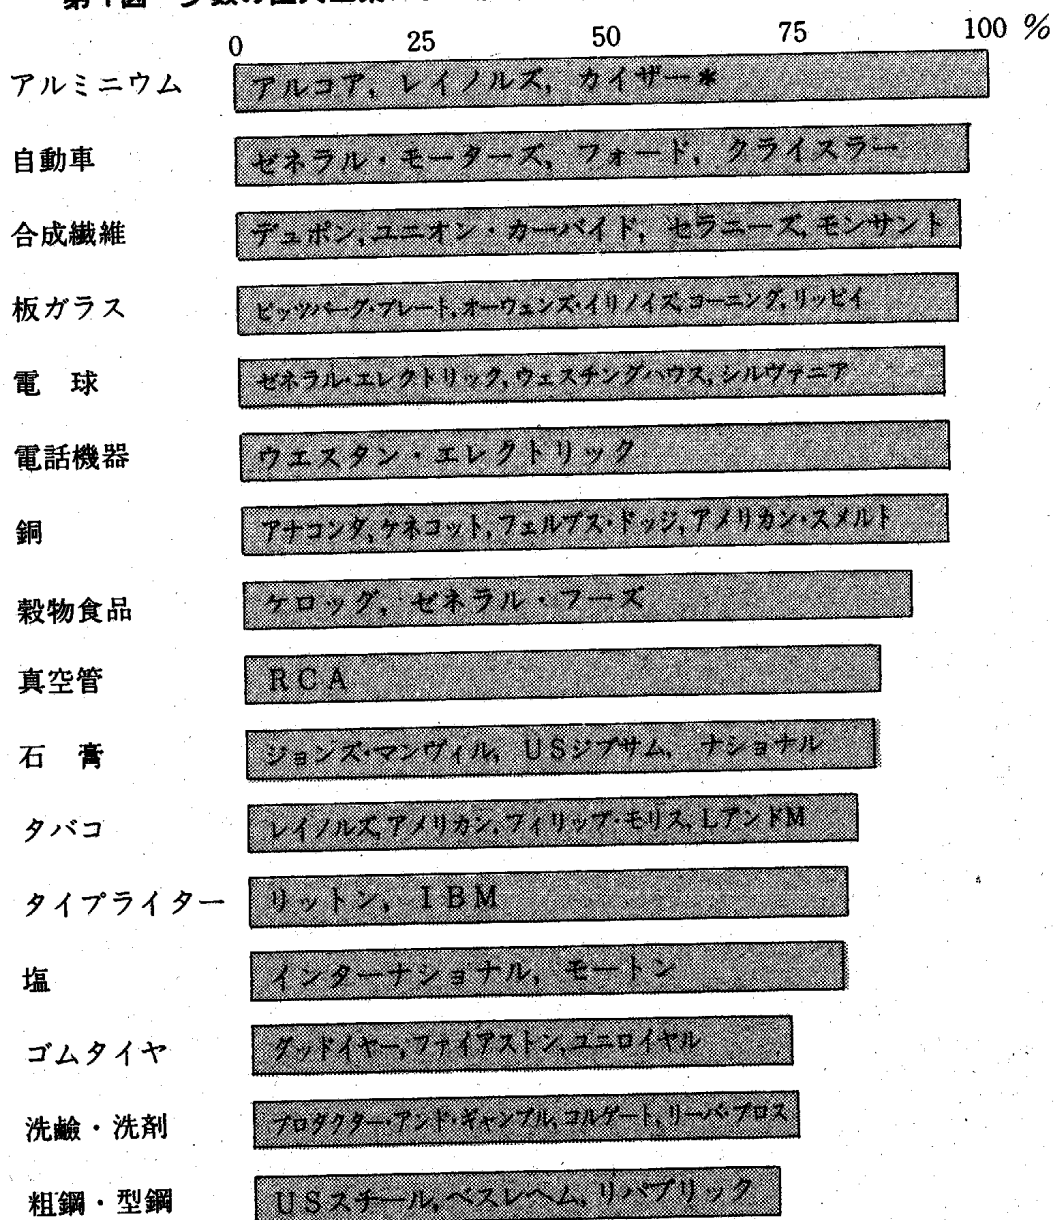 0 25 50 75 100 %
アルミニウム アルコア, レイノルズ, カイザー*
自動車 ゼネラル・モーターズ, フォード, クライスラー
合成繊維 デュポン, ユニオン・カーバイド, セラニーズ, モンサント
板ガラス ピッツバーグ・プレート, オーウェンズ・イリノイズ, コーニング, リッビイ
電 球 ゼネラル・エレクトリック, ウェスチングハウス, シルヴァニア
電話機器 ウエスタン・エレクトリック
銅 アナコンダ, ケネコット, フェルプス・ドッジ, アメリカン・スメルト
穀物食品 ケロッグ, ゼネラル・フーズ
真空管 RCA
石 膏 ジョンズ・マンヴィル, USジプサム, ナショナル
タバコ レイノルズ, アメリカン, フィリップ・モリス, LアンドM
タイプライター リットン, IBM
塩 インターナショナル, モートン
ゴムタイヤ グッドイヤー, ファイアストン, ユニロイヤル
洗鹼・洗剤 プロダクター・アンド・ギャンブル, コルゲート, リーバ・ブロス
粗鋼・型鋼 USスチール, ベスレヘム, リパブリック